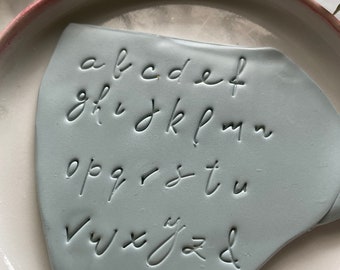 a b c d e f
g h i j k l m n
o p q r s t u
v w x y z &